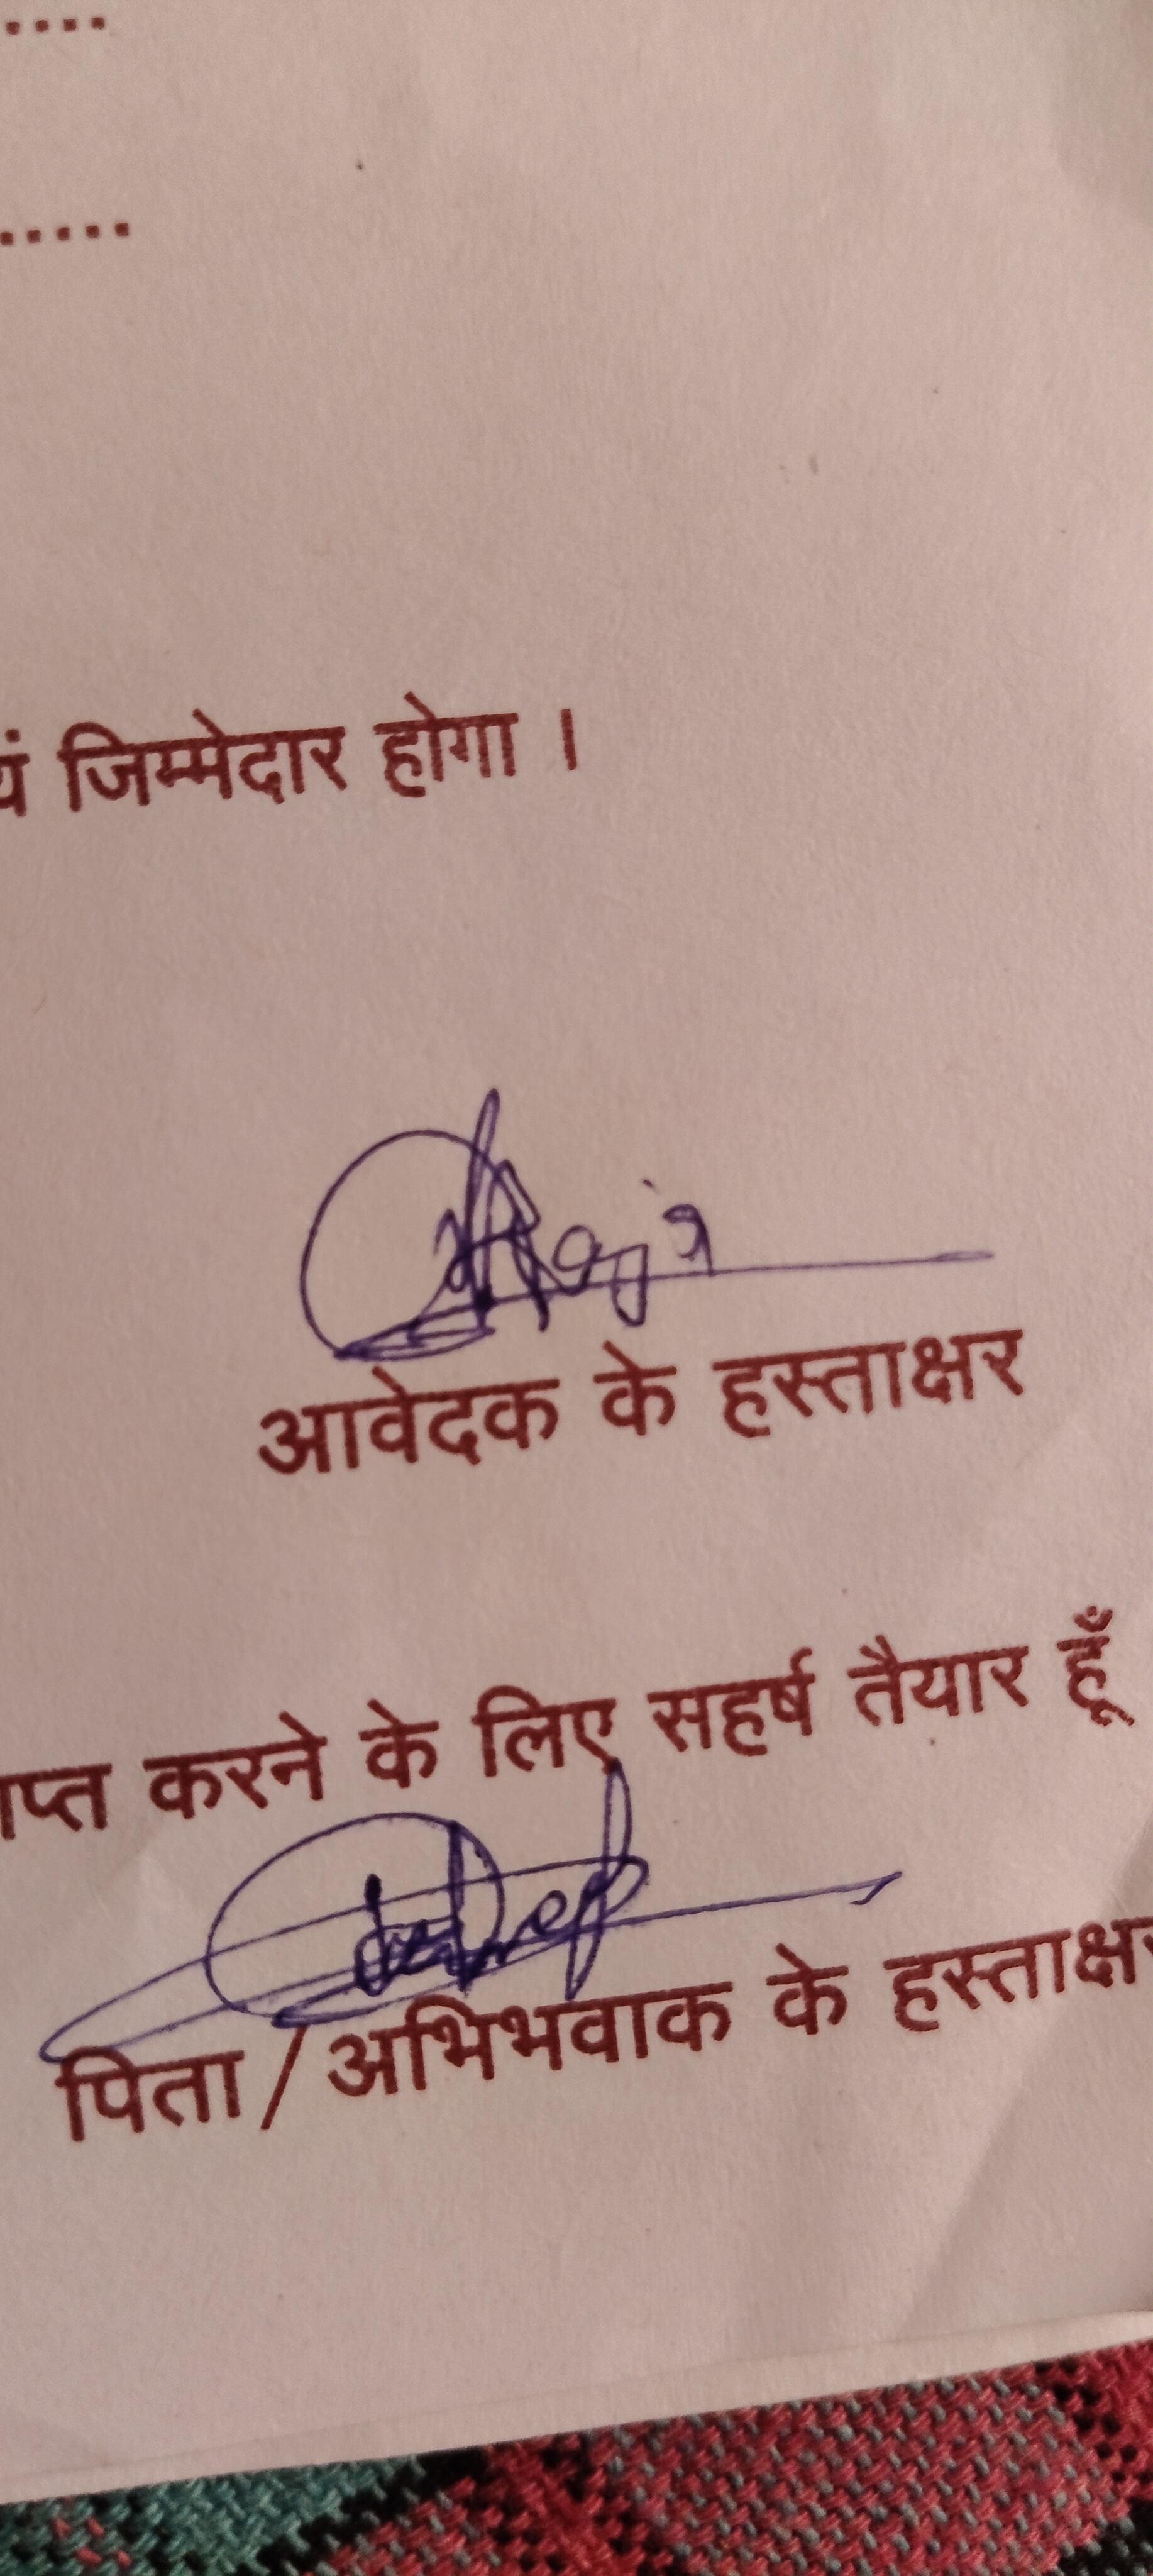 .....
.....
यं जिम्मेदार होगा ।
आवेदक के हस्ताक्षर
ाप्त करने के लिए सहर्ष तैयार हूँ
पिता/अभिभवाक के हस्ताक्षर